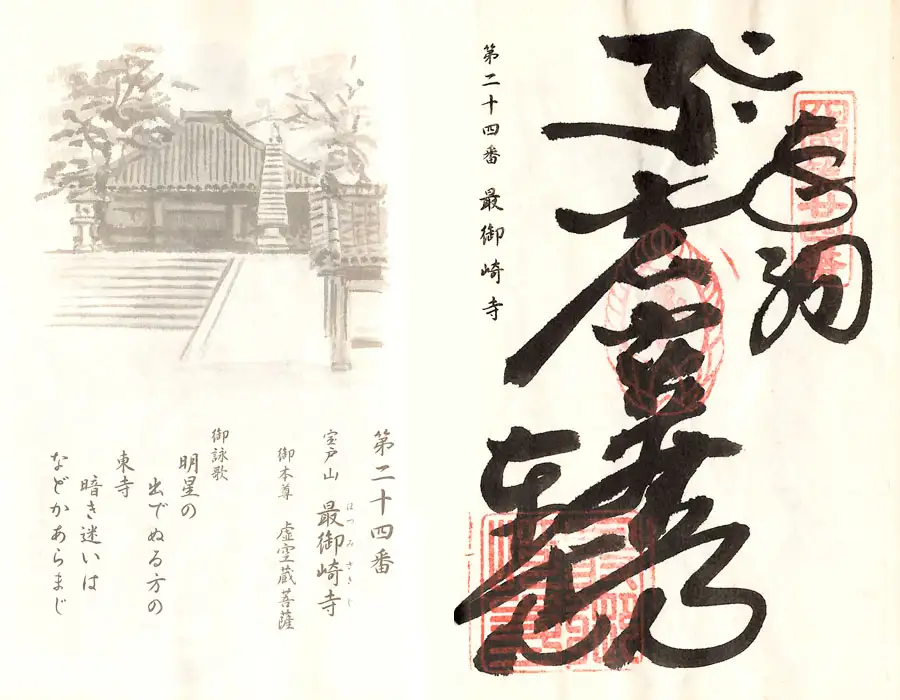 奉納
虚空蔵菩薩
東寺
第二十四番 最御崎寺
第二十四番
ほつみさきじ
室戸山 最御崎寺
御本尊 虚空蔵菩薩
御詠歌
明星の
出でぬる方の
東寺
暗き迷いは
などかあらまじ